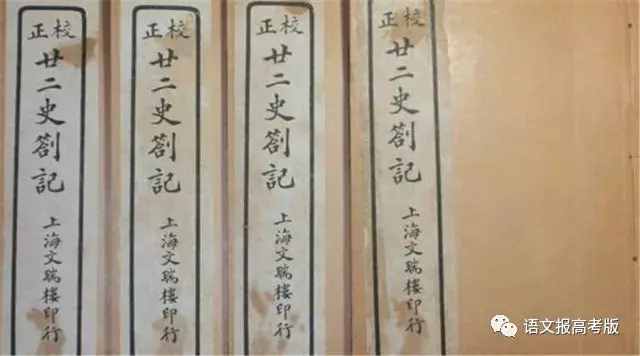 校正
廿二史劄記
上海文瑞樓印行
校正
廿二史劄記
上海文瑞樓印行
校正
廿二史劄記
上海文瑞樓印行
校正
廿二史劄記
上海文瑞樓印行
语文报高考版